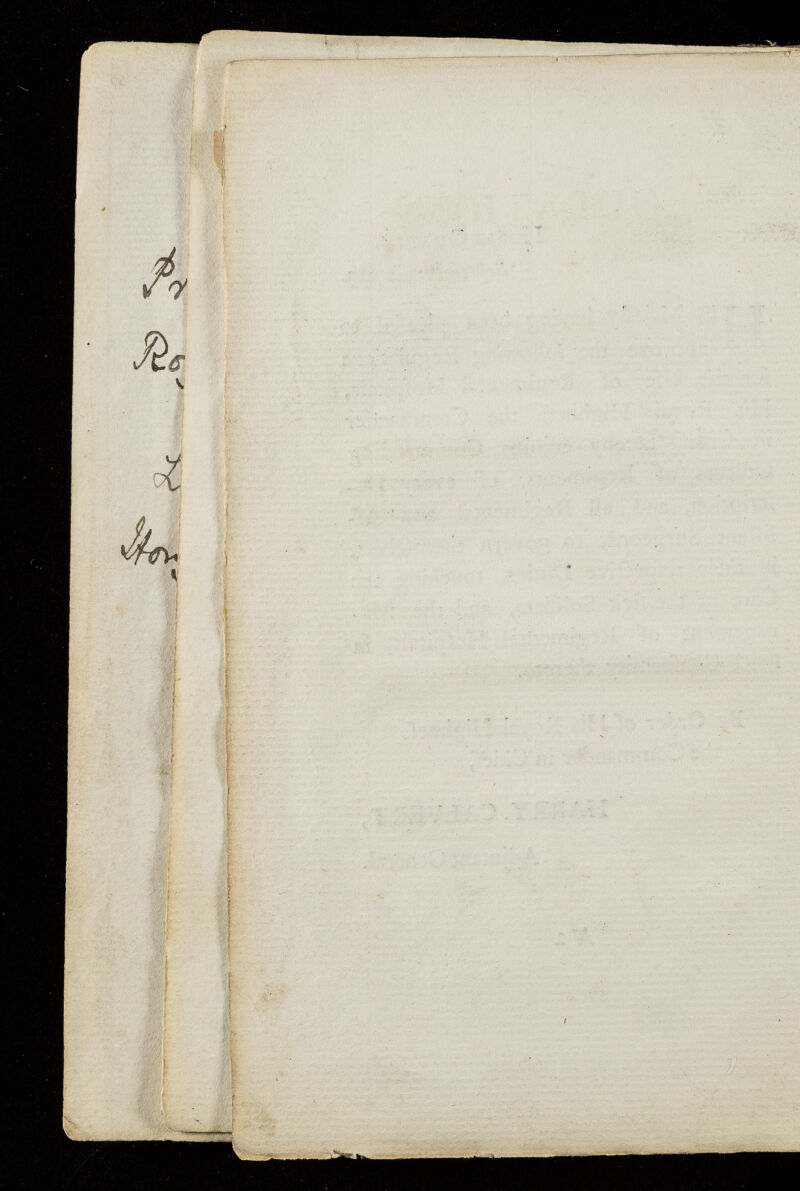 Pr
Ro
L
Hon
Horse Guards,
HIS Majesty having been pleased to
approve the following Regulations
for the Use of Regimental Hospitals,
His Royal Highness the Commander
in Chief hereby enjoins Commanding
Officers of Regiments, of every De-
scription, and all Regimental and As-
sistant Surgeons, to govern themselves,
in their respective Duties, touching the
Care of the sick Soldiers, and the Ma-
nagement of Regimental Hospitals, in
strict Conformity thereto.
By Order of His Royal Highness
Commander in Chief,
HARRY CALVERT,
Adjutant General.
A 2